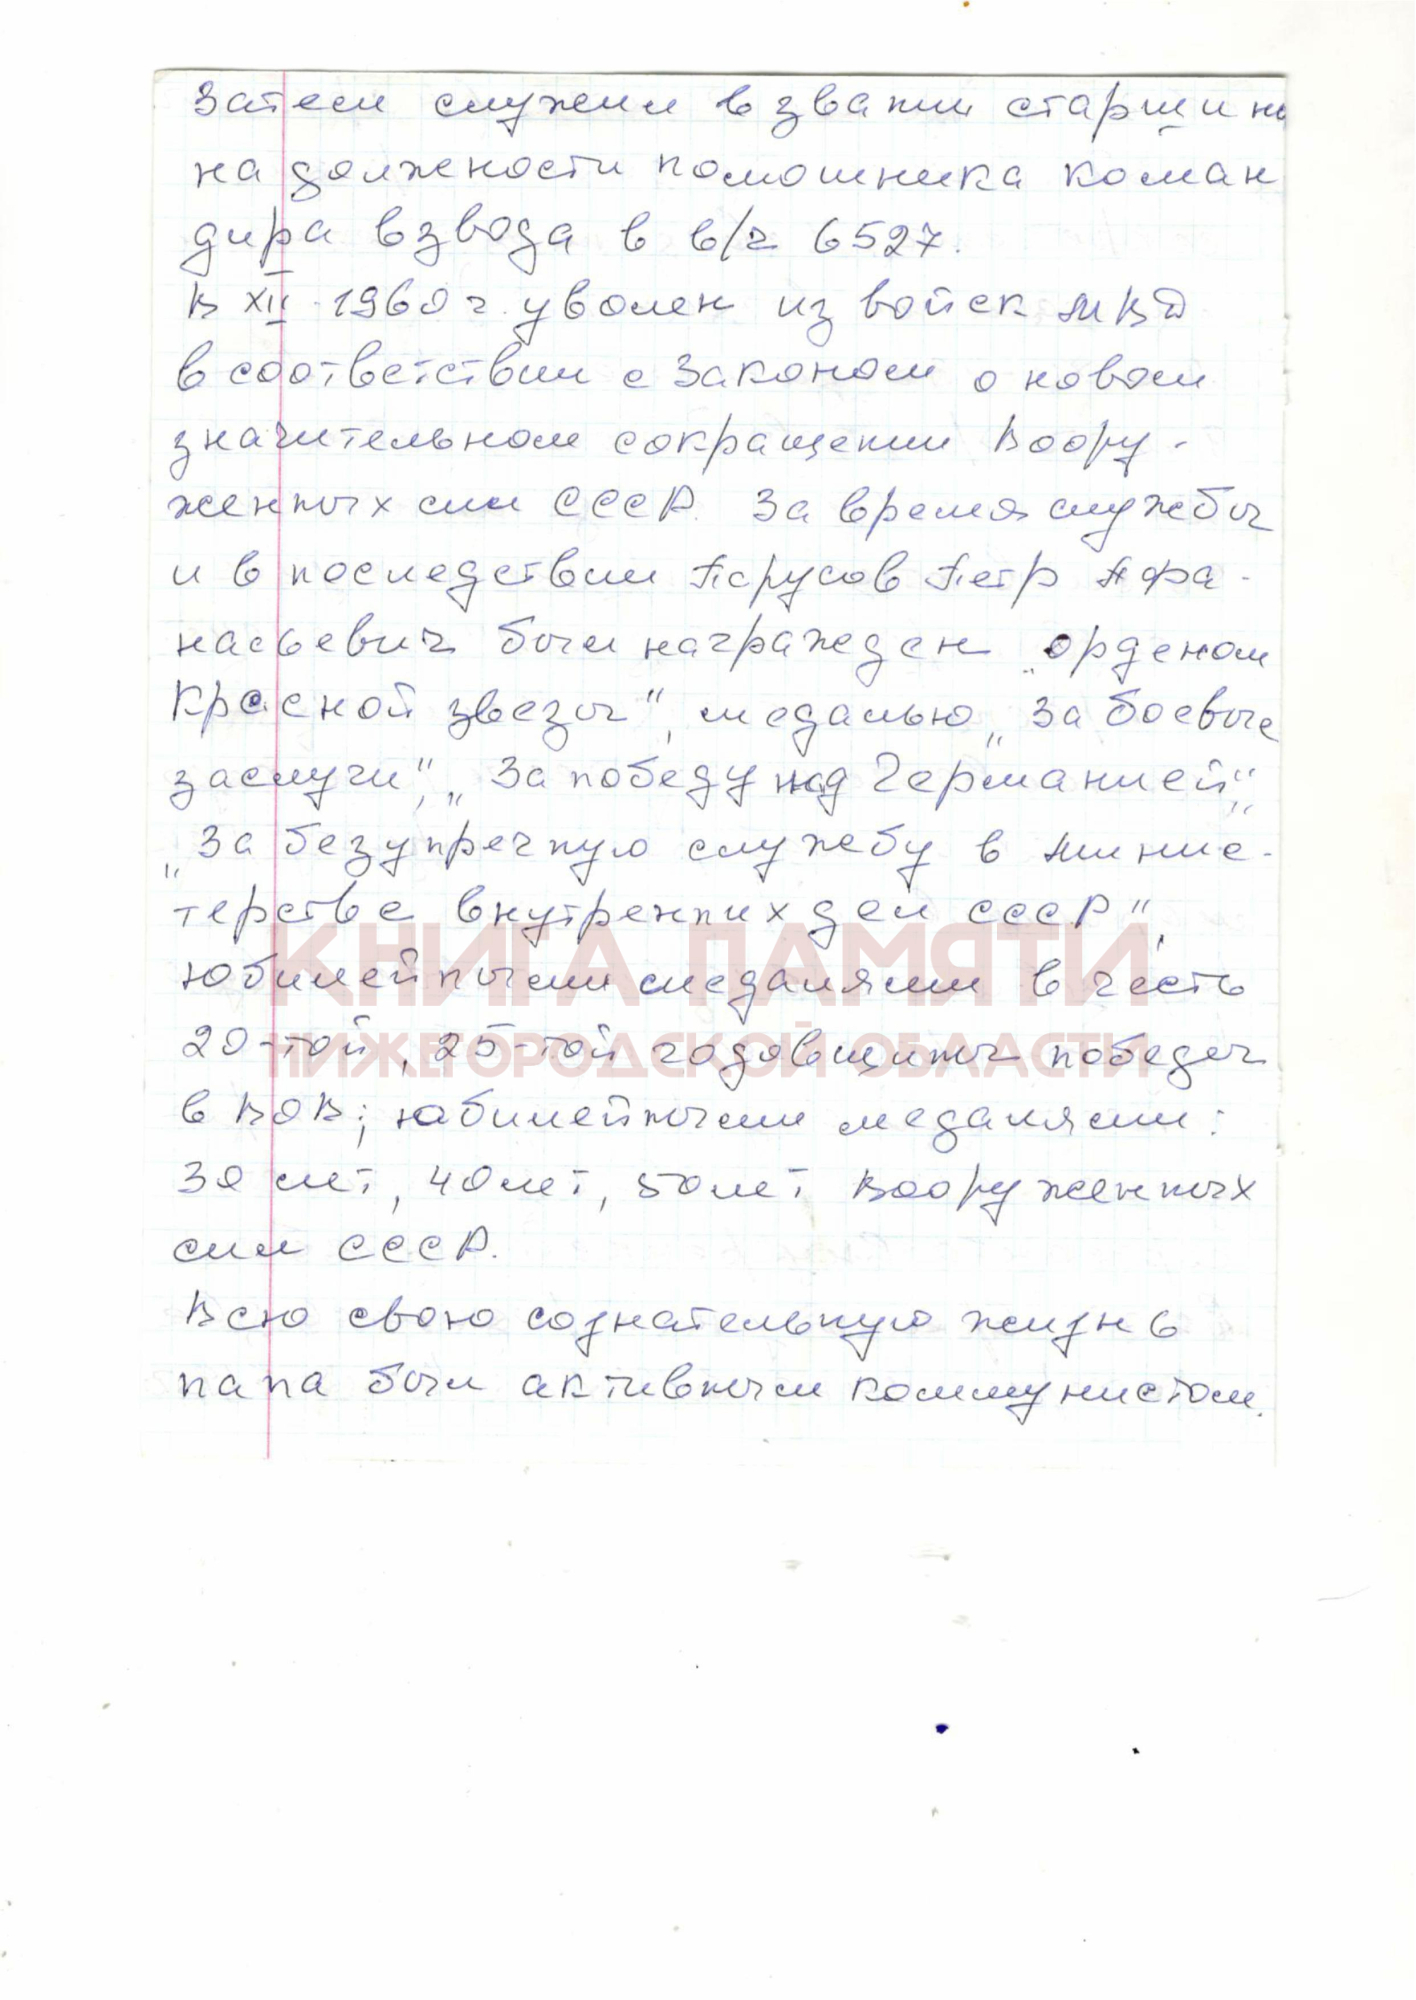 Затем служил в звании старшины
на должности помошника коман
дира взвода в в/ч 6527.
В XII 1960 г. уволен из войск МВД
в соответствии с Законом о новом
значительном сокращении Воору-
женных сил СССР. За время службы
и в последствии Парусов Петр Афа-
насьевич был награжден „орденом
Красной звезды", медалью „За боевые
заслуги", „За победу над Германией",
„За безупречную службу в минис-
терстве внутренних дел СССР",
КНИГА ПАМЯТИ
юбилейными медалями в честь
20-той, 25-той годовщины победы
НИЖЕГОРОДСКОЙ ОБЛАСТИ
в ВОВ; юбилейными медалями:
30 лет, 40 лет, 50 лет Вооруженных
сил СССР.
Всю свою сознательную жизнь
папа был активным коммунистом.